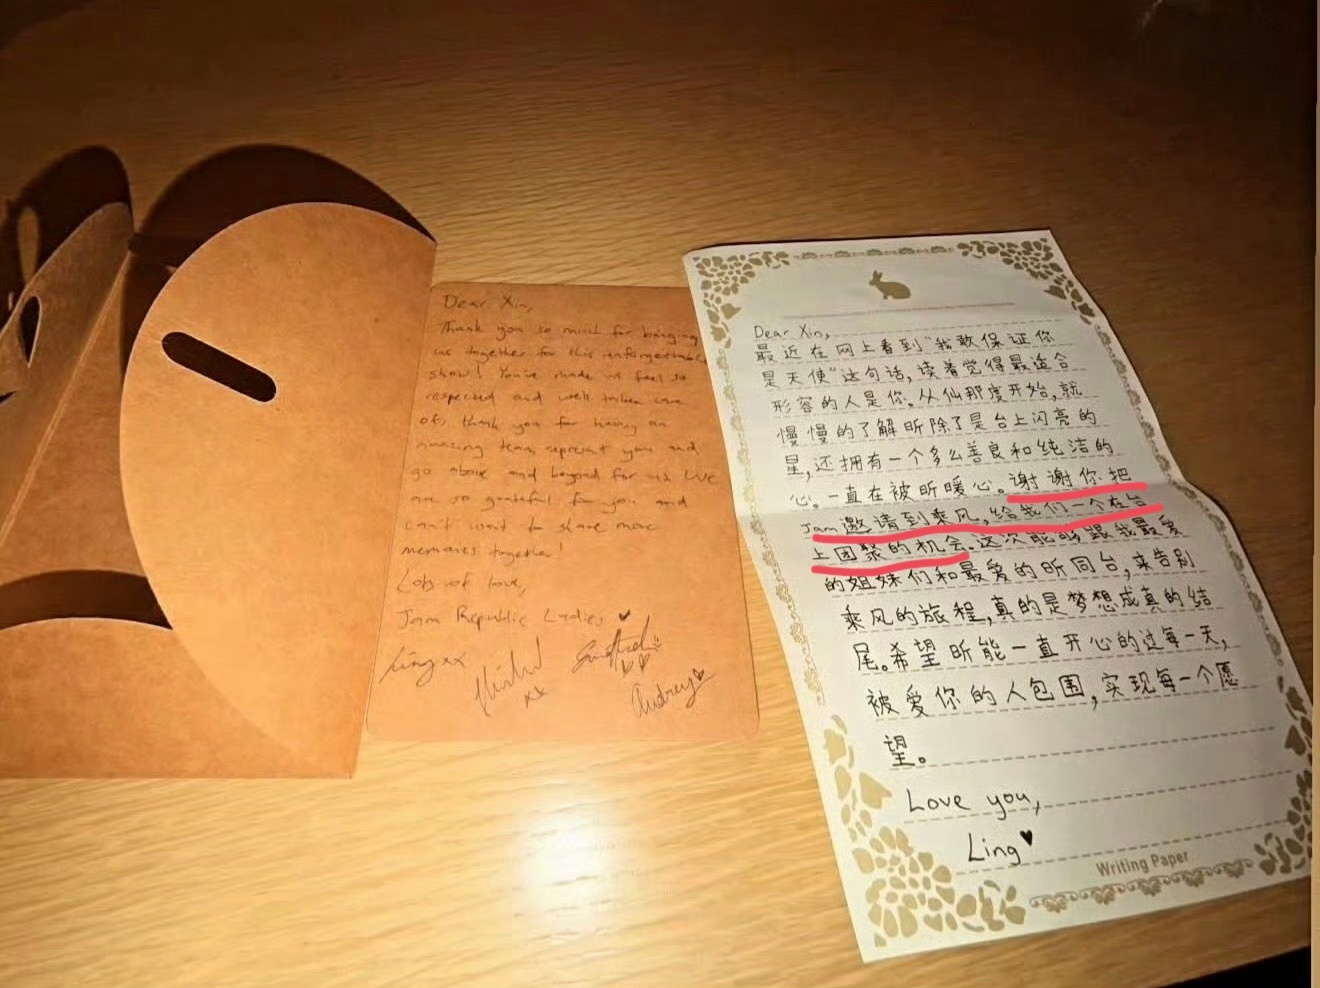 Dear Xin,
Thank you so much for bringing
us together for this unforgettable
show! You've made us feel so
respected and well taken care
of, thank you for having an
amazing team represent you and
go above and beyond for us. We
are so grateful for you and
can't wait to share more
memories together!
Lots of love,
Jam Republic Ladies
Ling xx
Kirsten xx
Audrey
Dear Xin,
最近在网上看到“我敢保证你
是天使”这句话，读着觉得最适合
形容的人是你。从仙那度开始，就
慢慢的了解昕除了是台上闪亮的
星，还拥有一个多么善良和纯洁的
心。一直在被昕暖心。谢谢你把
Jam邀请到乘风，给我们一个在台
上团聚的机会。这次能够跟我最爱
的姐妹们和最爱的昕同台，来告别
乘风的旅程，真的是梦想成真的结
尾。希望昕能一直开心的过每一天，
被爱你的人包围，实现每一个愿
望。
Love you,
Ling
Writing Paper